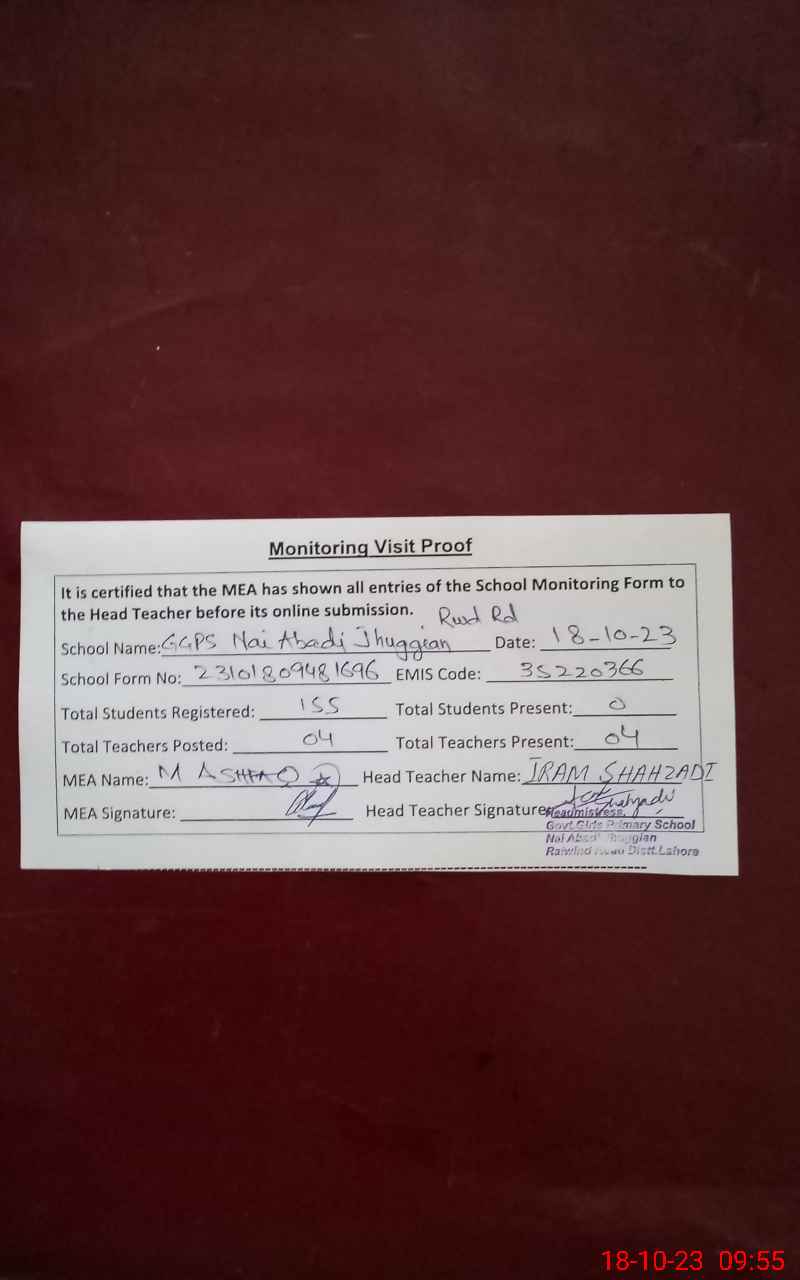 Monitoring Visit Proof
It is certified that the MEA has shown all entries of the School Monitoring Form to
the Head Teacher before its online submission. Rwd Rd
School Name: GGPS Nai Abadi Jhuggian Date: 18-10-23
School Form No: 23101809481696 EMIS Code: 35220366
Total Students Registered: 155 Total Students Present: 0
Total Teachers Posted: 04 Total Teachers Present: 04
MEA Name: M ASHFAQ Head Teacher Name: IRAM SHAHZADI
MEA Signature: Head Teacher Signature
Headmistress,
Govt.Girls Primary School
Nai Abadi Jhuggian
Raiwind Road Distt.Lahore
18-10-23 09:55